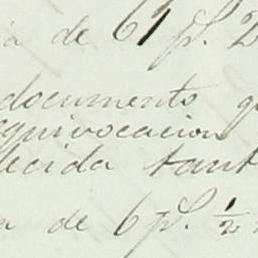 a de 61 p/. 2
documento q
equivocacion
lecida tant
a de 6 p/. 1/2